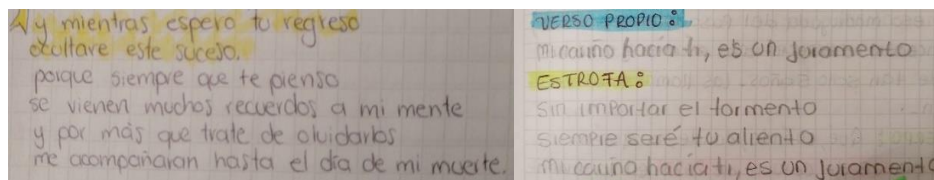 y mientras espero tu regreso
ocultare este suceso.
porque siempre que te pienso
se vienen muchos recuerdos a mi mente
y por más que trate de olvidarlos
me acompañaran hasta el día de mi muerte.
VERSO PROPIO:
mi cariño hacia ti, es un juramento
ESTROFA:
sin importar el tormento
siempre seré tu aliento
mi cariño hacia ti, es un juramento